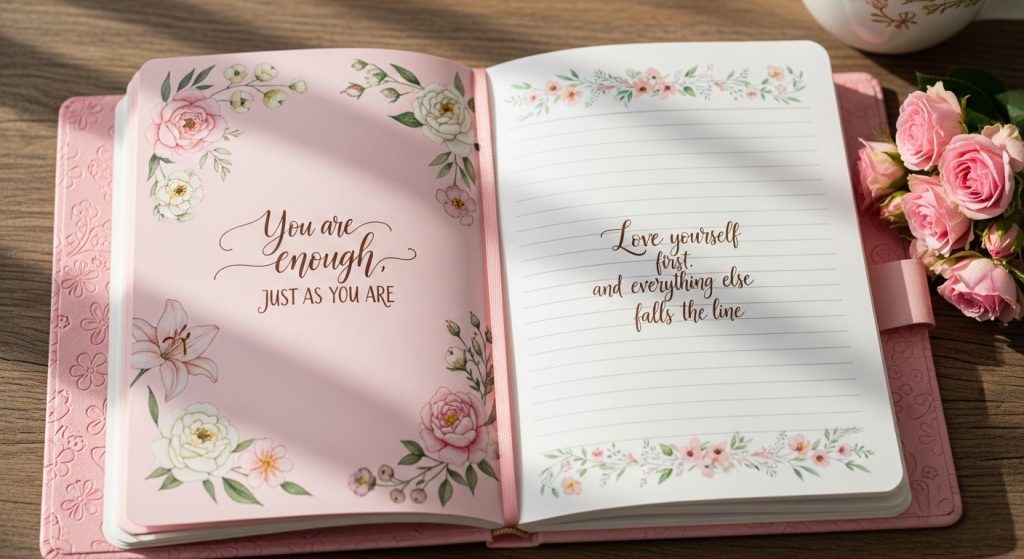 You are
enough,
JUST AS YOU ARE
Love yourself
first.
and everything else
falls the line